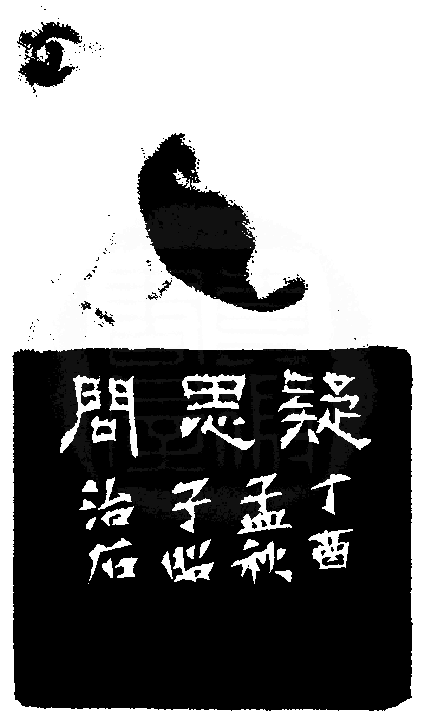 疑思問
丁酉
孟秋
子昭
治石